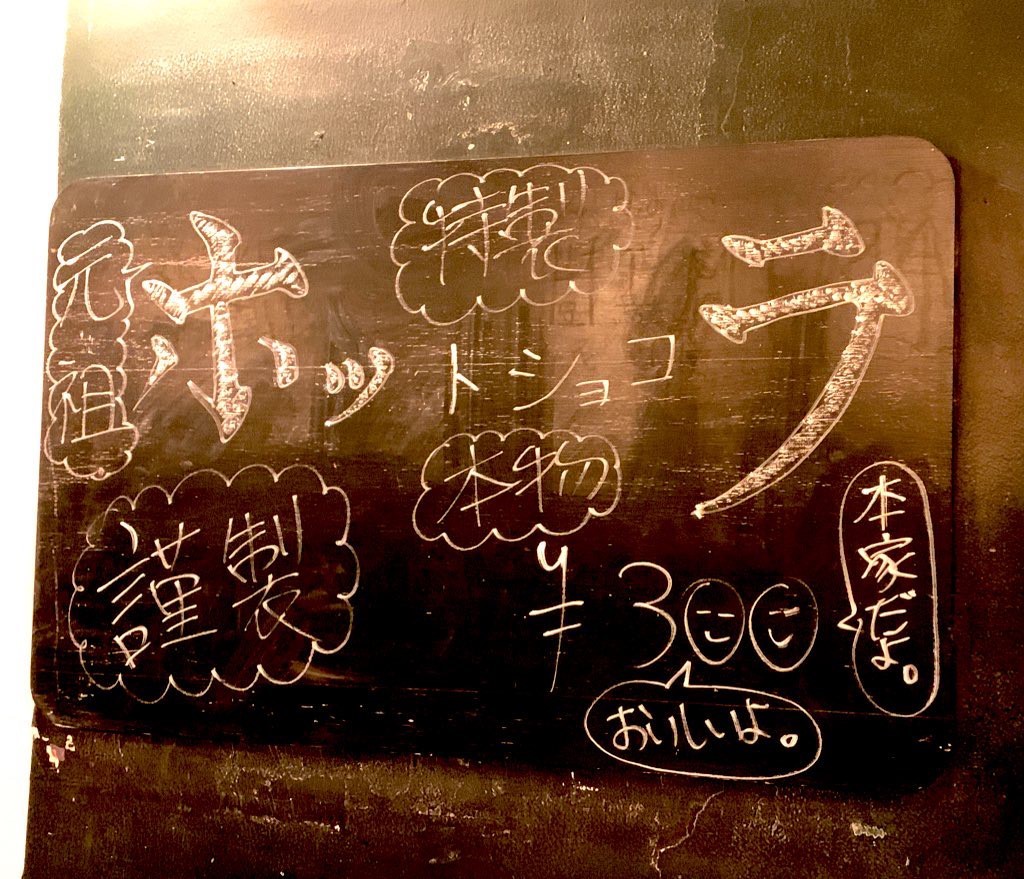 元祖
特製
ホットショコラ
本物
謹製
¥300
本家だよ。
おいしいよ。